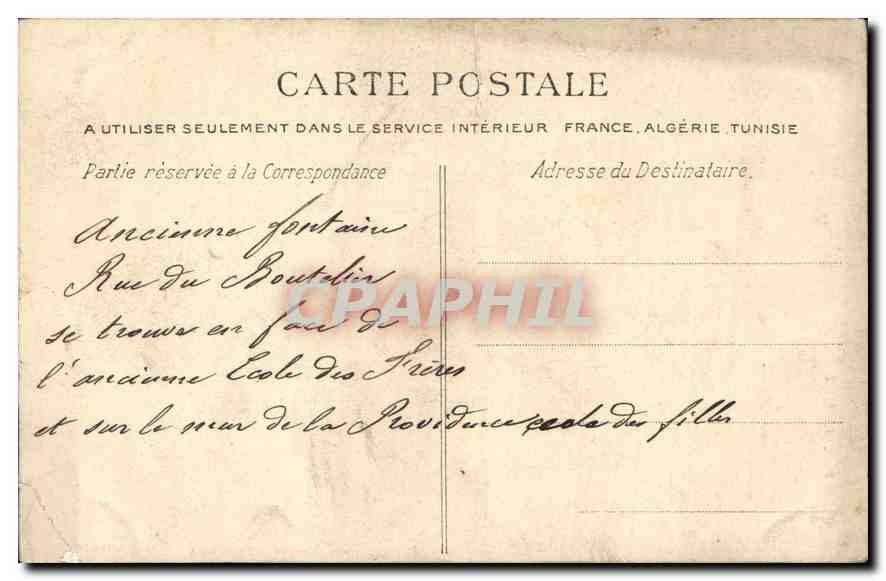 CARTE POSTALE
A UTILISER SEULEMENT DANS LE SERVICE INTÉRIEUR FRANCE, ALGÉRIE, TUNISIE
Partie réservée à la Correspondance
Adresse du Destinataire.
Ancienne fontaine
Rue du Boutelier
se trouve en face de
l'ancienne Ecole des Frères
et sur le mur de la Providence ecole des filles
CPAPHIL